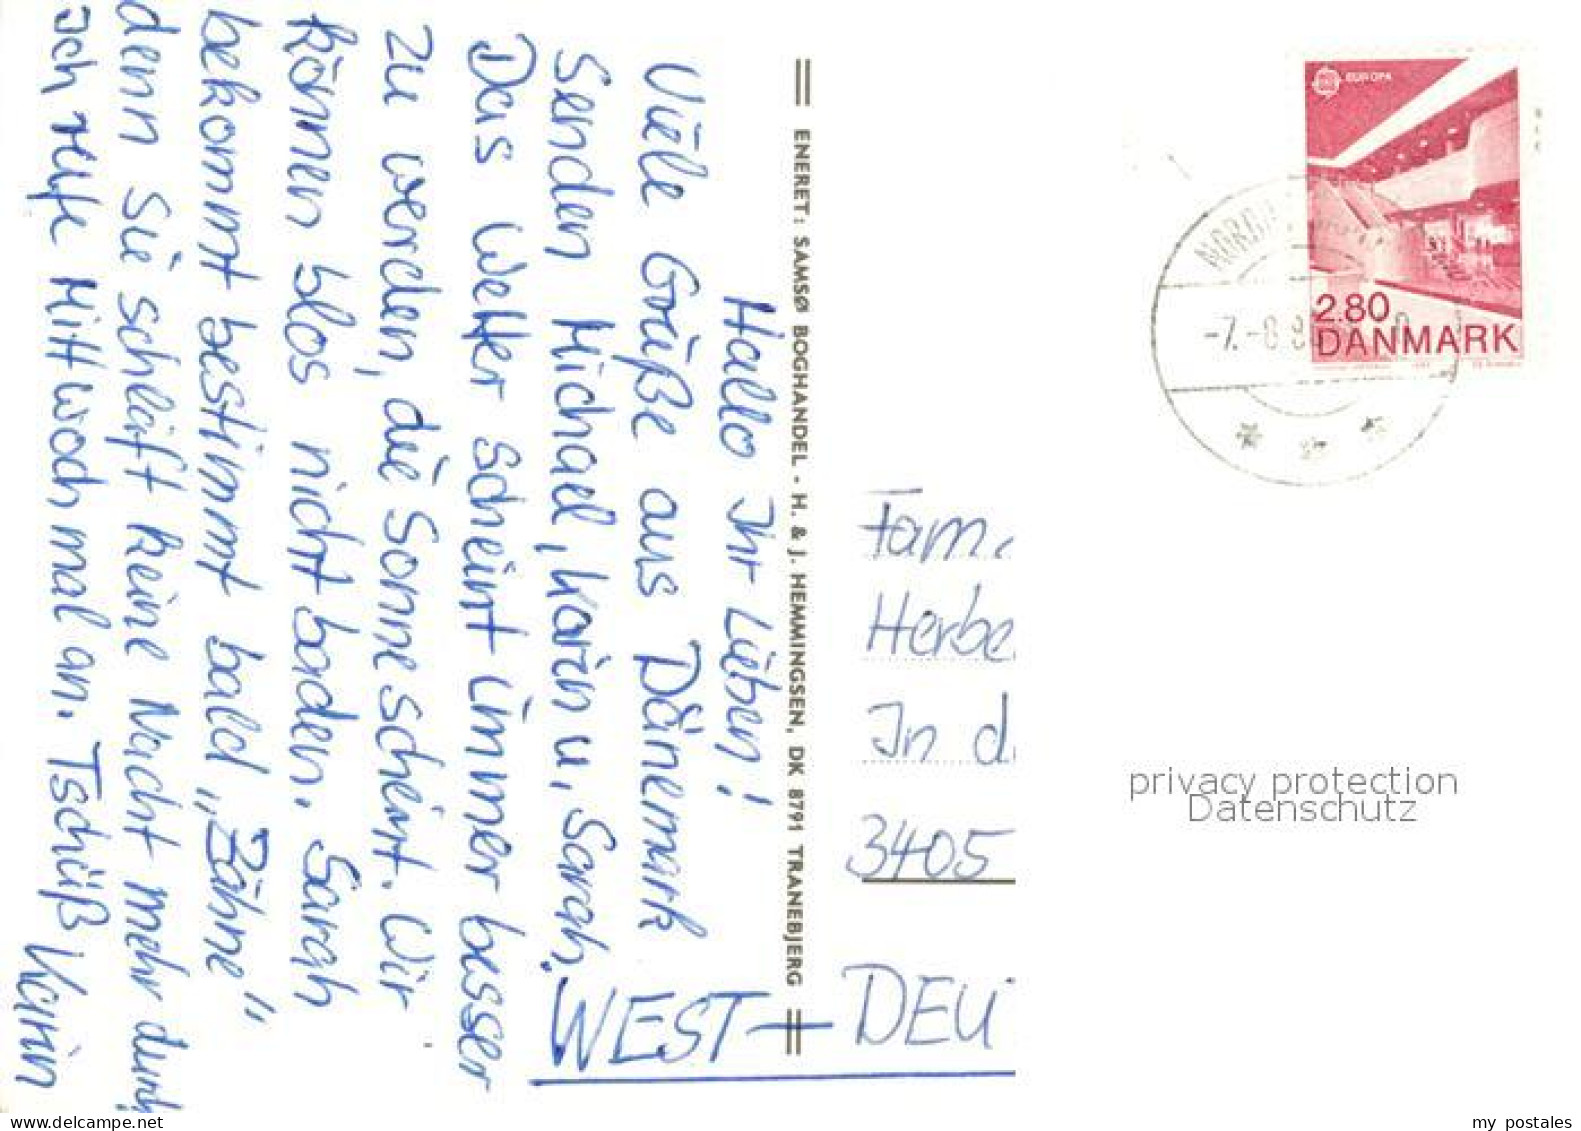 Hallo Ihr Lieben!
Viele Grüße aus Dänemark
senden Michael, Karin u, Sarah.
Das Wetter scheint immer besser
zu werden, die Sonne scheint. Wir
können blos nicht baden. Sarah
bekommt bestimmt bald „Zähne"
denn sie schläft keine Nacht mehr durch
Ich rufe Mittwoch mal an. Tschüß Karin
ENERET: SAMSØ BOGHANDEL - H. & J. HEMMINGSEN, DK 8791 TRANEBJERG
EUROPA
2.80
DANMARK
-7.-8.8
Fam.
Herbe
In d
3405
WEST-DEU
privacy protection
Datenschutz
my postales